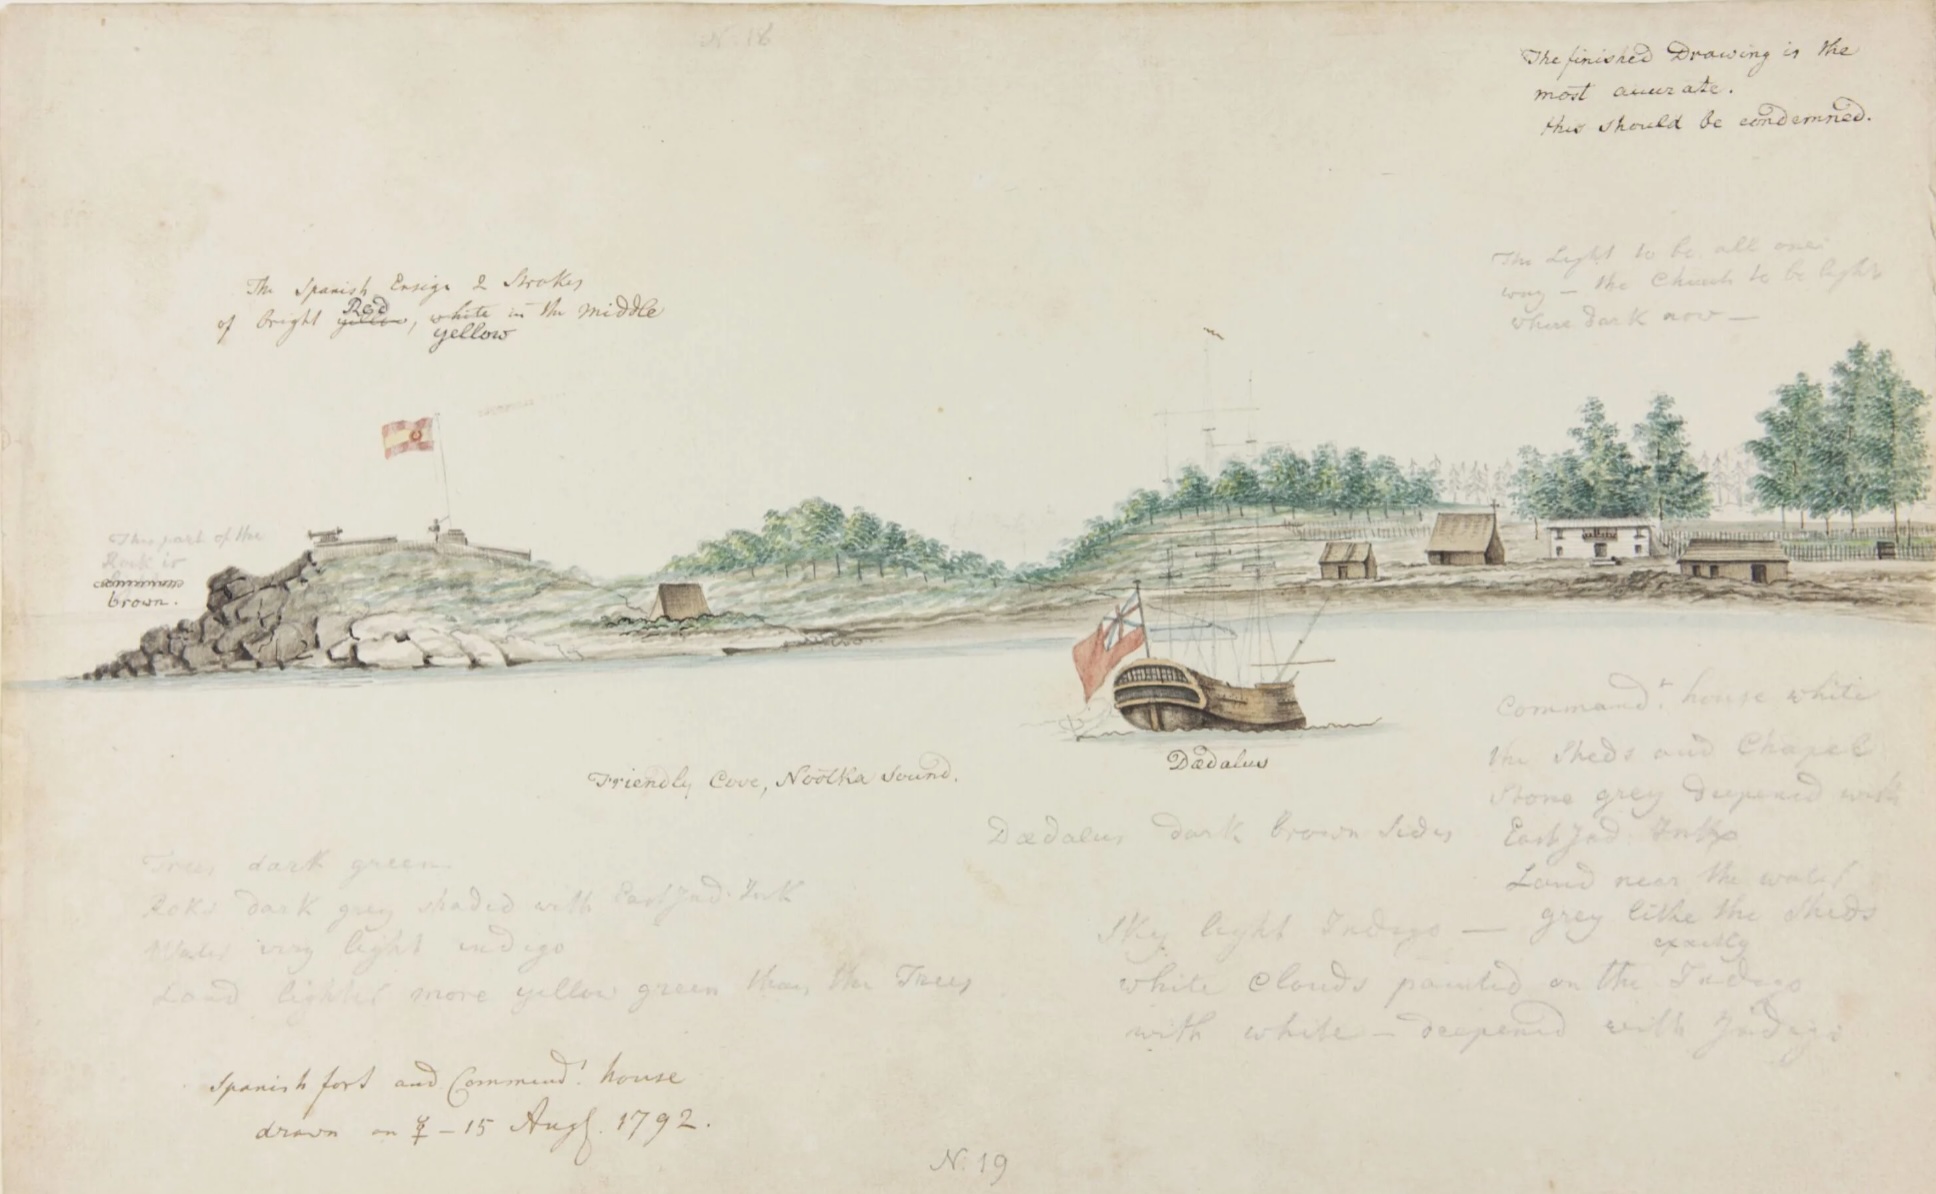 N. 18
The finished Drawing is the
most accurate.
this should be condemned.
The Light to be all one
way – the Church to be light
where dark now –
The Spanish Ensign 2 Strokes
of bright yellow, white in the middle
Red
yellow
This part of the
Rock is
brown.
Friendly Cove, Nootka Sound.
Dædalus
Command.t house white
the Sheds and Chapel
Stone grey deepened with
East Ind. Ink
Land near the water
grey like the Sheds
exactly
Dædalus dark brown Sides
Trees dark green
Roks dark grey shaded with East Ind. Ink
Water very light indigo
Land lighter more yellow green than the Trees
Sky light Indigo –
white Clouds painted on the Indigo
with white – deepened with Indigo
Spanish fort and Commend.t house
drawn on ☿ – 15 Augs. 1792.
N. 19